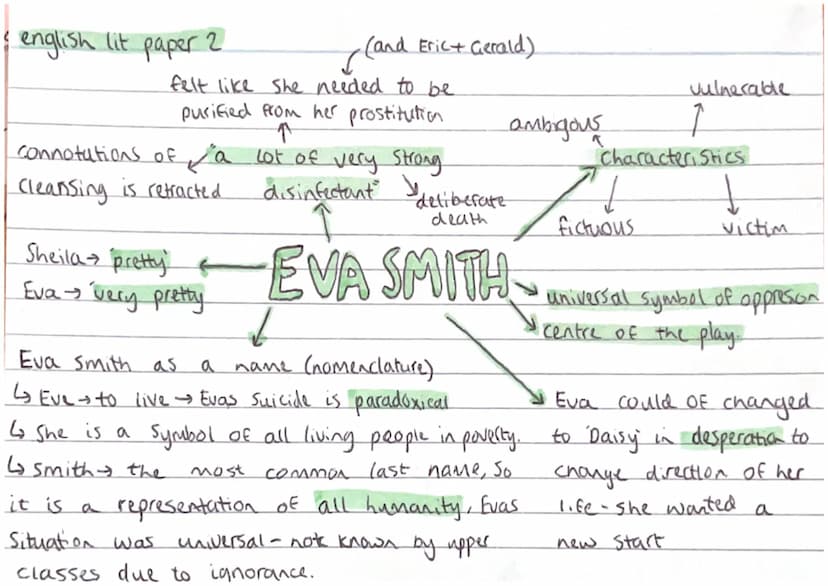 english lit paper 2
(and Eric + Gerald)
felt like she needed to be
purified from her prostitution
"a lot of very strong
disinfectant"
connotutions of
cleansing is retracted
deliberate
death
characteristics
ambigous
vulnerable
fictuous
victim
Sheila → 'pretty'
Eva → 'very pretty
EVA SMITH
universal symbol of oppreson
centre of the play.
Eva Smith as a name (nomenclature)
↳ Eve → to live → Evas suicide is paradoxical
↳ She is a symbol of all living people in poverty.
↳ Smith → the most common last name, so
it is a representation of all humanity, Evas
situation was universal - not known by upper
classes due to ignorance.
Eva could of changed
to 'Daisy' in desperation to
change direction of her
life - she wanted a
new start